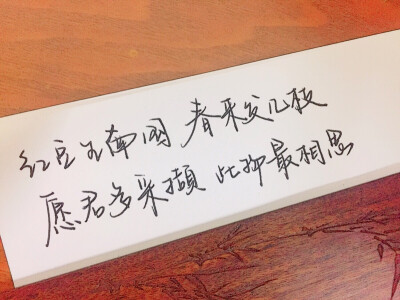 红豆生南国 春来发几枝
愿君多采撷 此物最相思